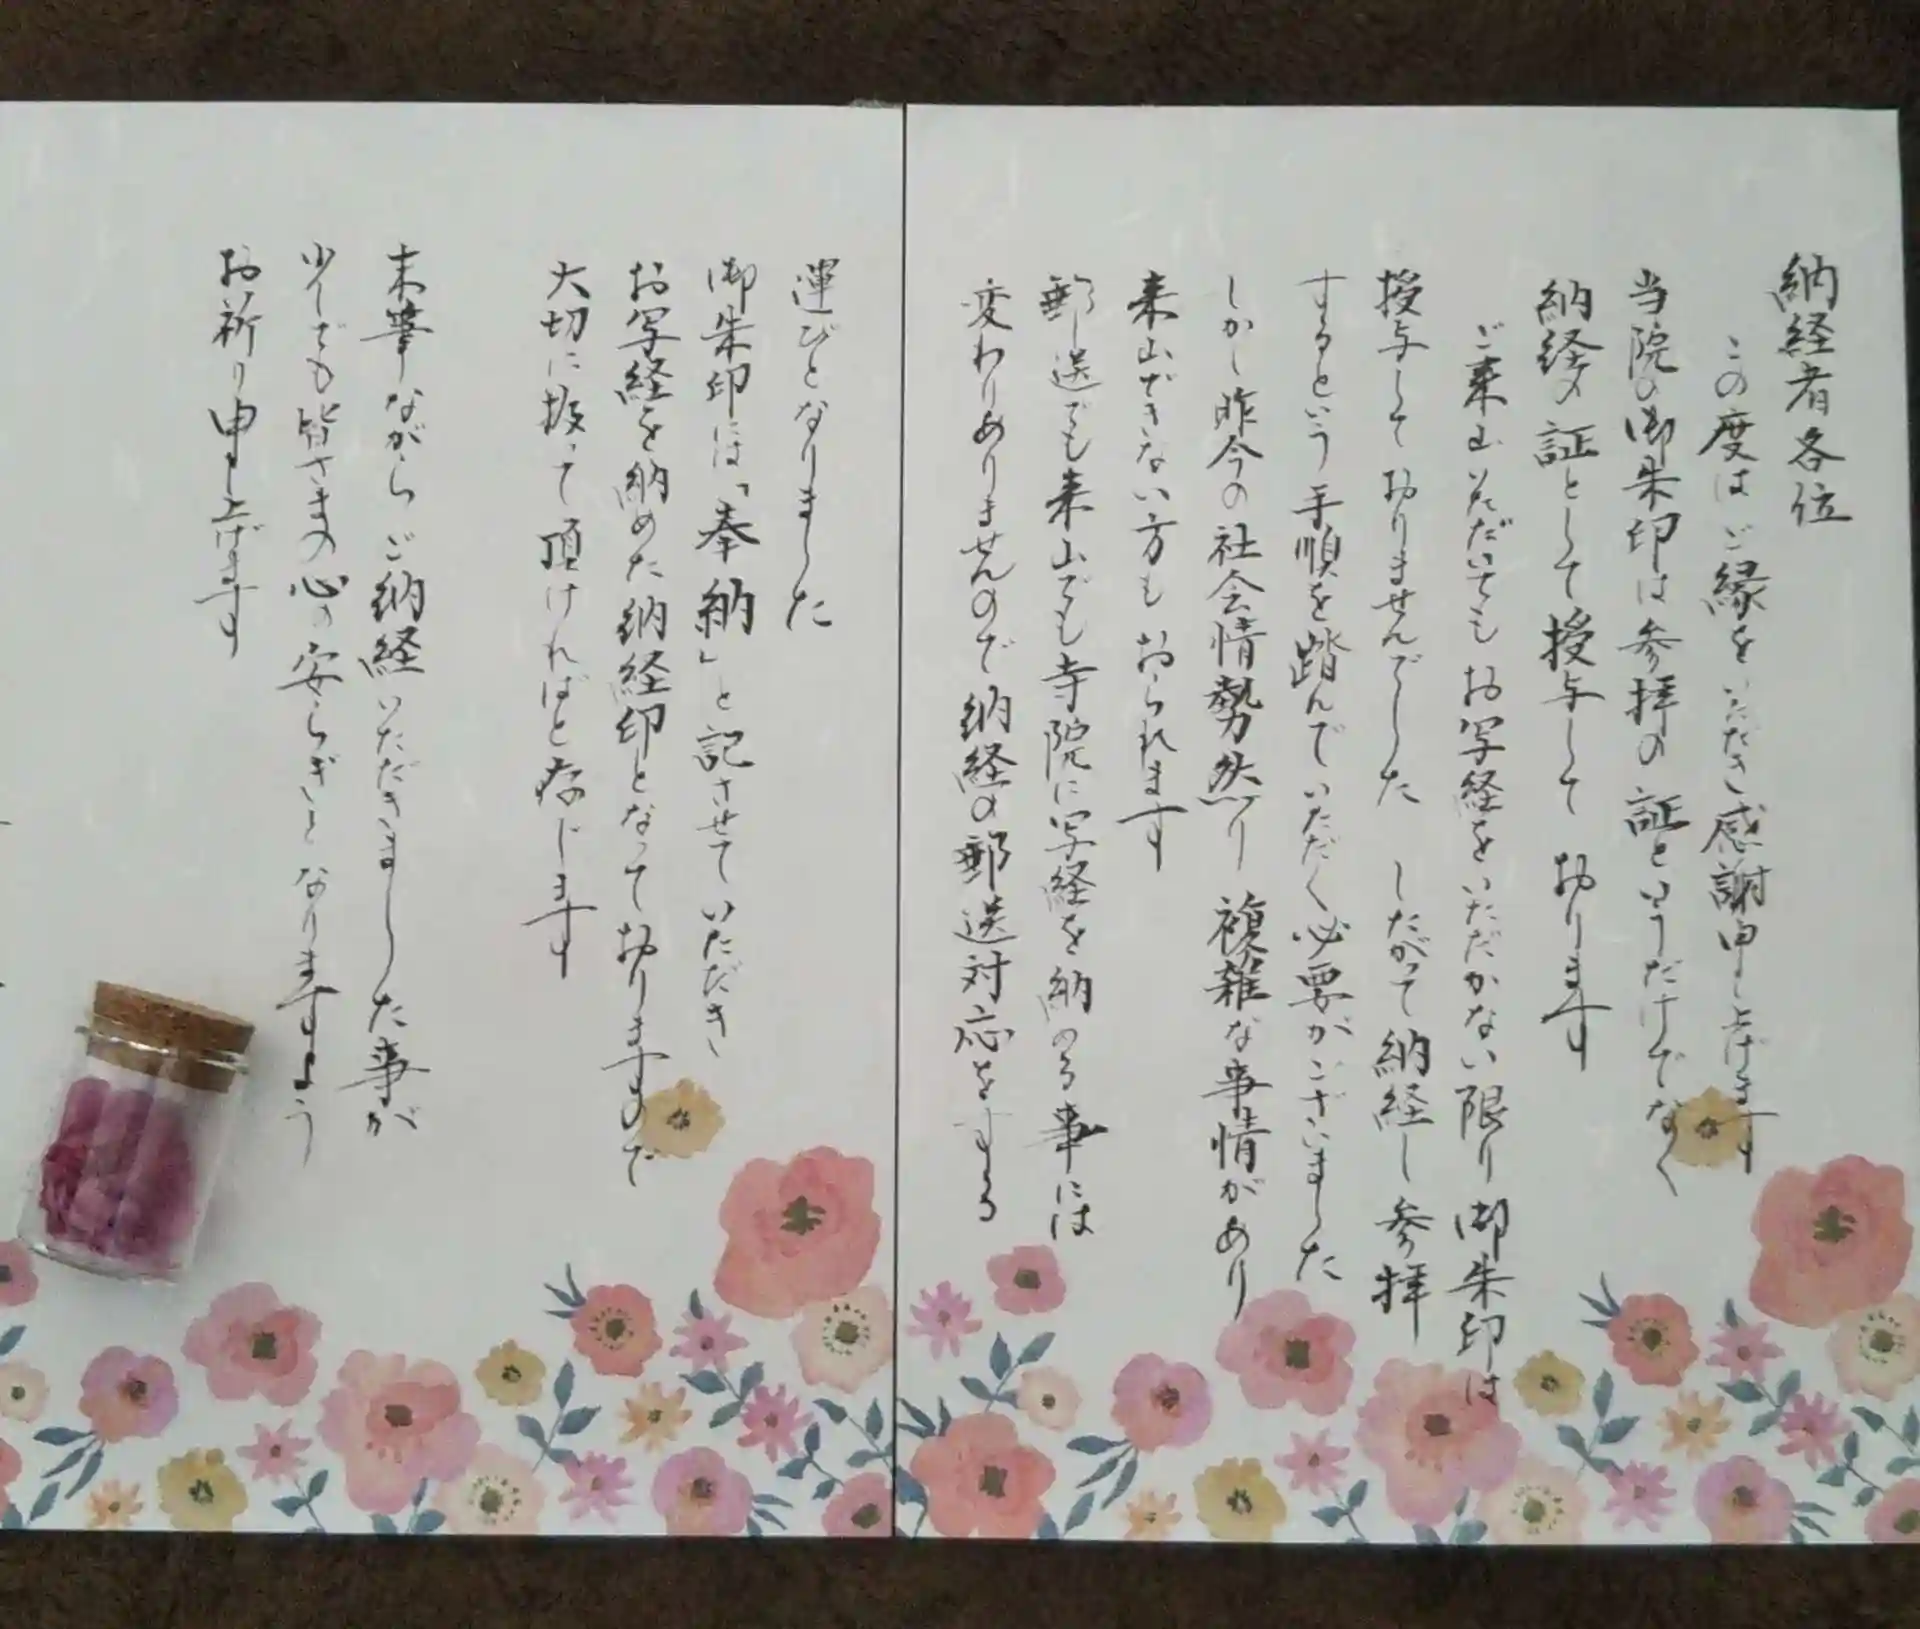 納経者各位
この度はご縁をいただき感謝申し上げます
当院の御朱印は参拝の証というだけでなく
納経の証として授与して おります
ご来山いただいてもお写経をいただかない限り御朱印は
授与して おりませんでした したがって納経し参拝
するという手順を踏んでいただく必要がございました
しかし昨今の社会情勢然り 複雑な事情があり
来山できない方もおられます
郵送でも来山でも寺院に写経を納める事には
変わりありませんので納経の郵送対応をする
運びとなりました
御朱印には「奉納」と記させていただき
お写経を納めた納経印となっておりますので
大切に扱って頂ければと存じます
末筆ながらご納経いただきました事が
少しでも皆さまの心の安らぎとなりますよう
お祈り申し上げます